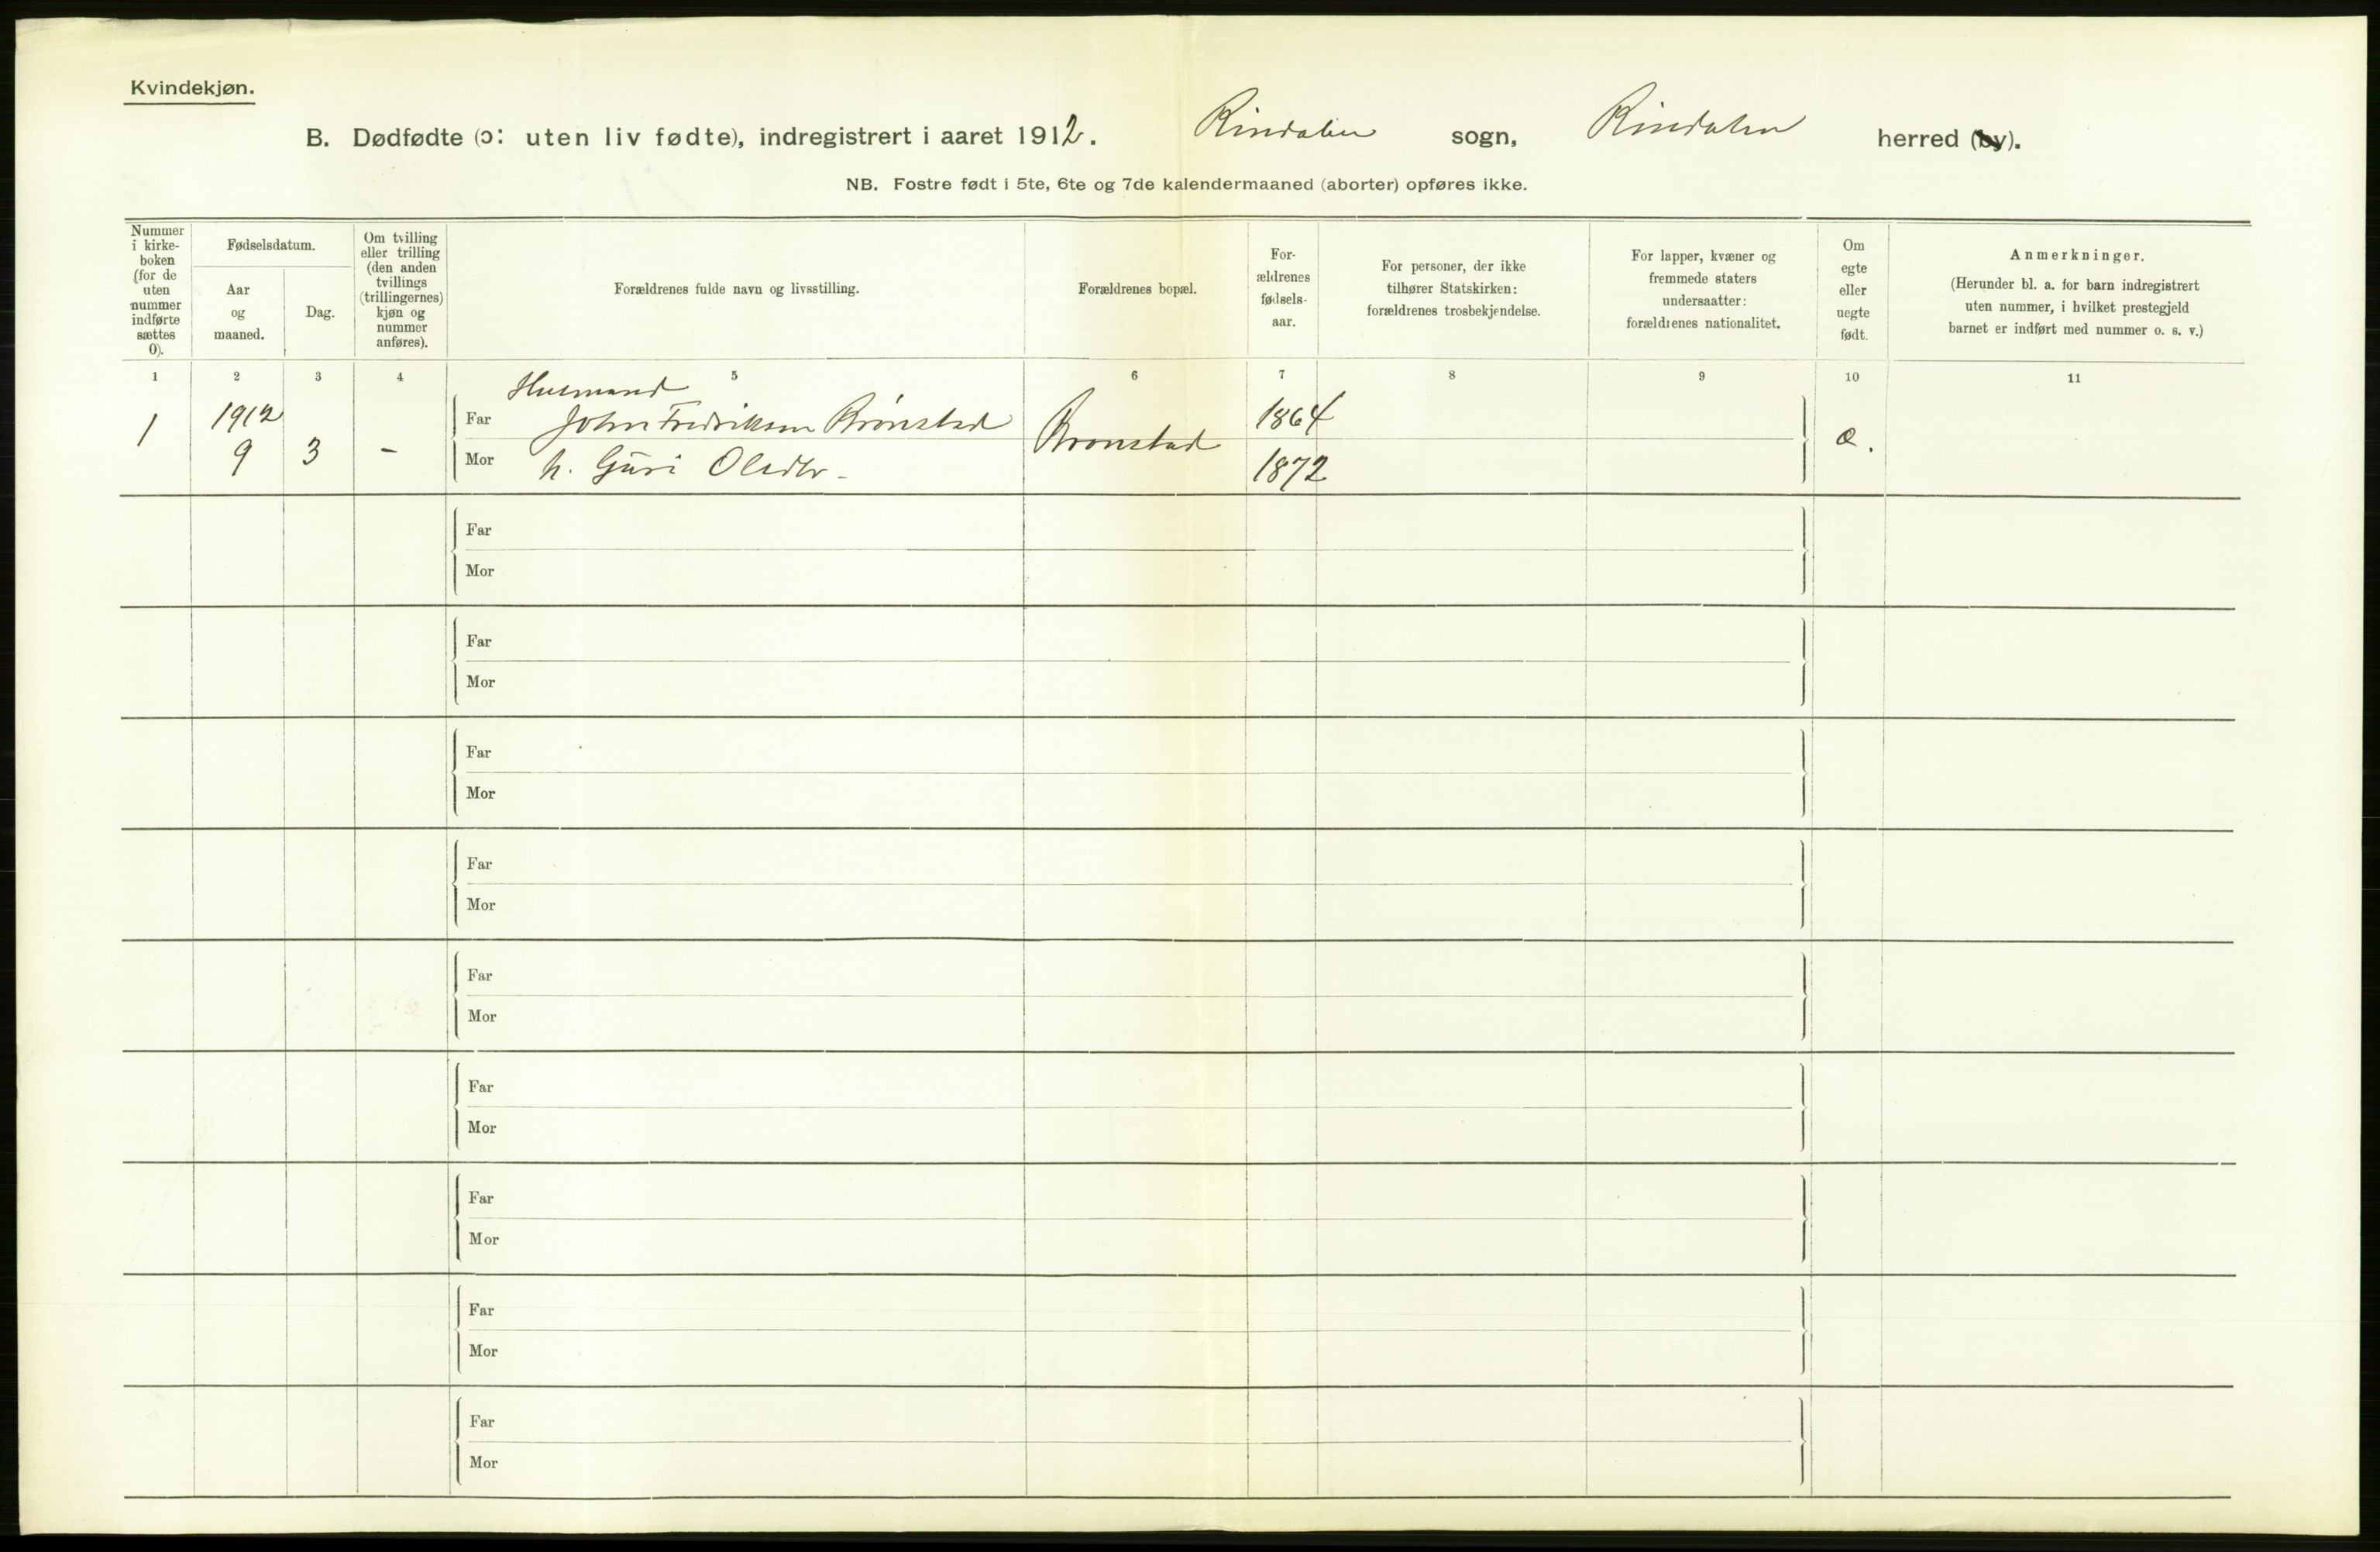 Kvindekjøn.
B. Dødfødte (ɔ: uten liv fødte), indregistrert i aaret 1912. Rindalen sogn, Rindalen herred (by).
NB. Fostre født i 5te, 6te og 7de kalendermaaned (aborter) opføres ikke.
Nummer
i kirke-
boken
(for de
uten
nummer
indførte
sættes
0).
Fødselsdatum.
Aar
og
maaned.
Dag.
Om tvilling
eller trilling
(den anden
tvillings
(trillingernes)
kjøn og
nummer
anføres).
Forældrenes fulde navn og livsstilling.
Forældrenes bopæl.
For-
ældrenes
fødsels-
aar.
For personer, der ikke
tilhører Statskirken:
forældrenes trosbekjendelse.
For lapper, kvæner og
fremmede staters
undersaatter:
forældrenes nationalitet.
Om
egte
eller
uegte
født.
Anmerkninger.
(Herunder bl. a. for barn indregistrert
uten nummer, i hvilket prestegjeld
barnet er indført med nummer o. s. v.)
1 2 3 4 5 6 7 8 9 10 11
Husmand
1 1912 Far John Fredriksen Brønstad Bronstad 1864 æ.
9 3 - Mor h. Guri Olsdtr - 1872
Far
Mor
Far
Mor
Far
Mor
Far
Mor
Far
Mor
Far
Mor
Far
Mor
Far
Mor
Far
Mor